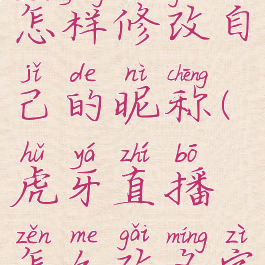 怎样修改自
jǐ de nì chēng
己的昵称(
hǔ yá zhí bō
虎牙直播
zěn me gǎi míng zì